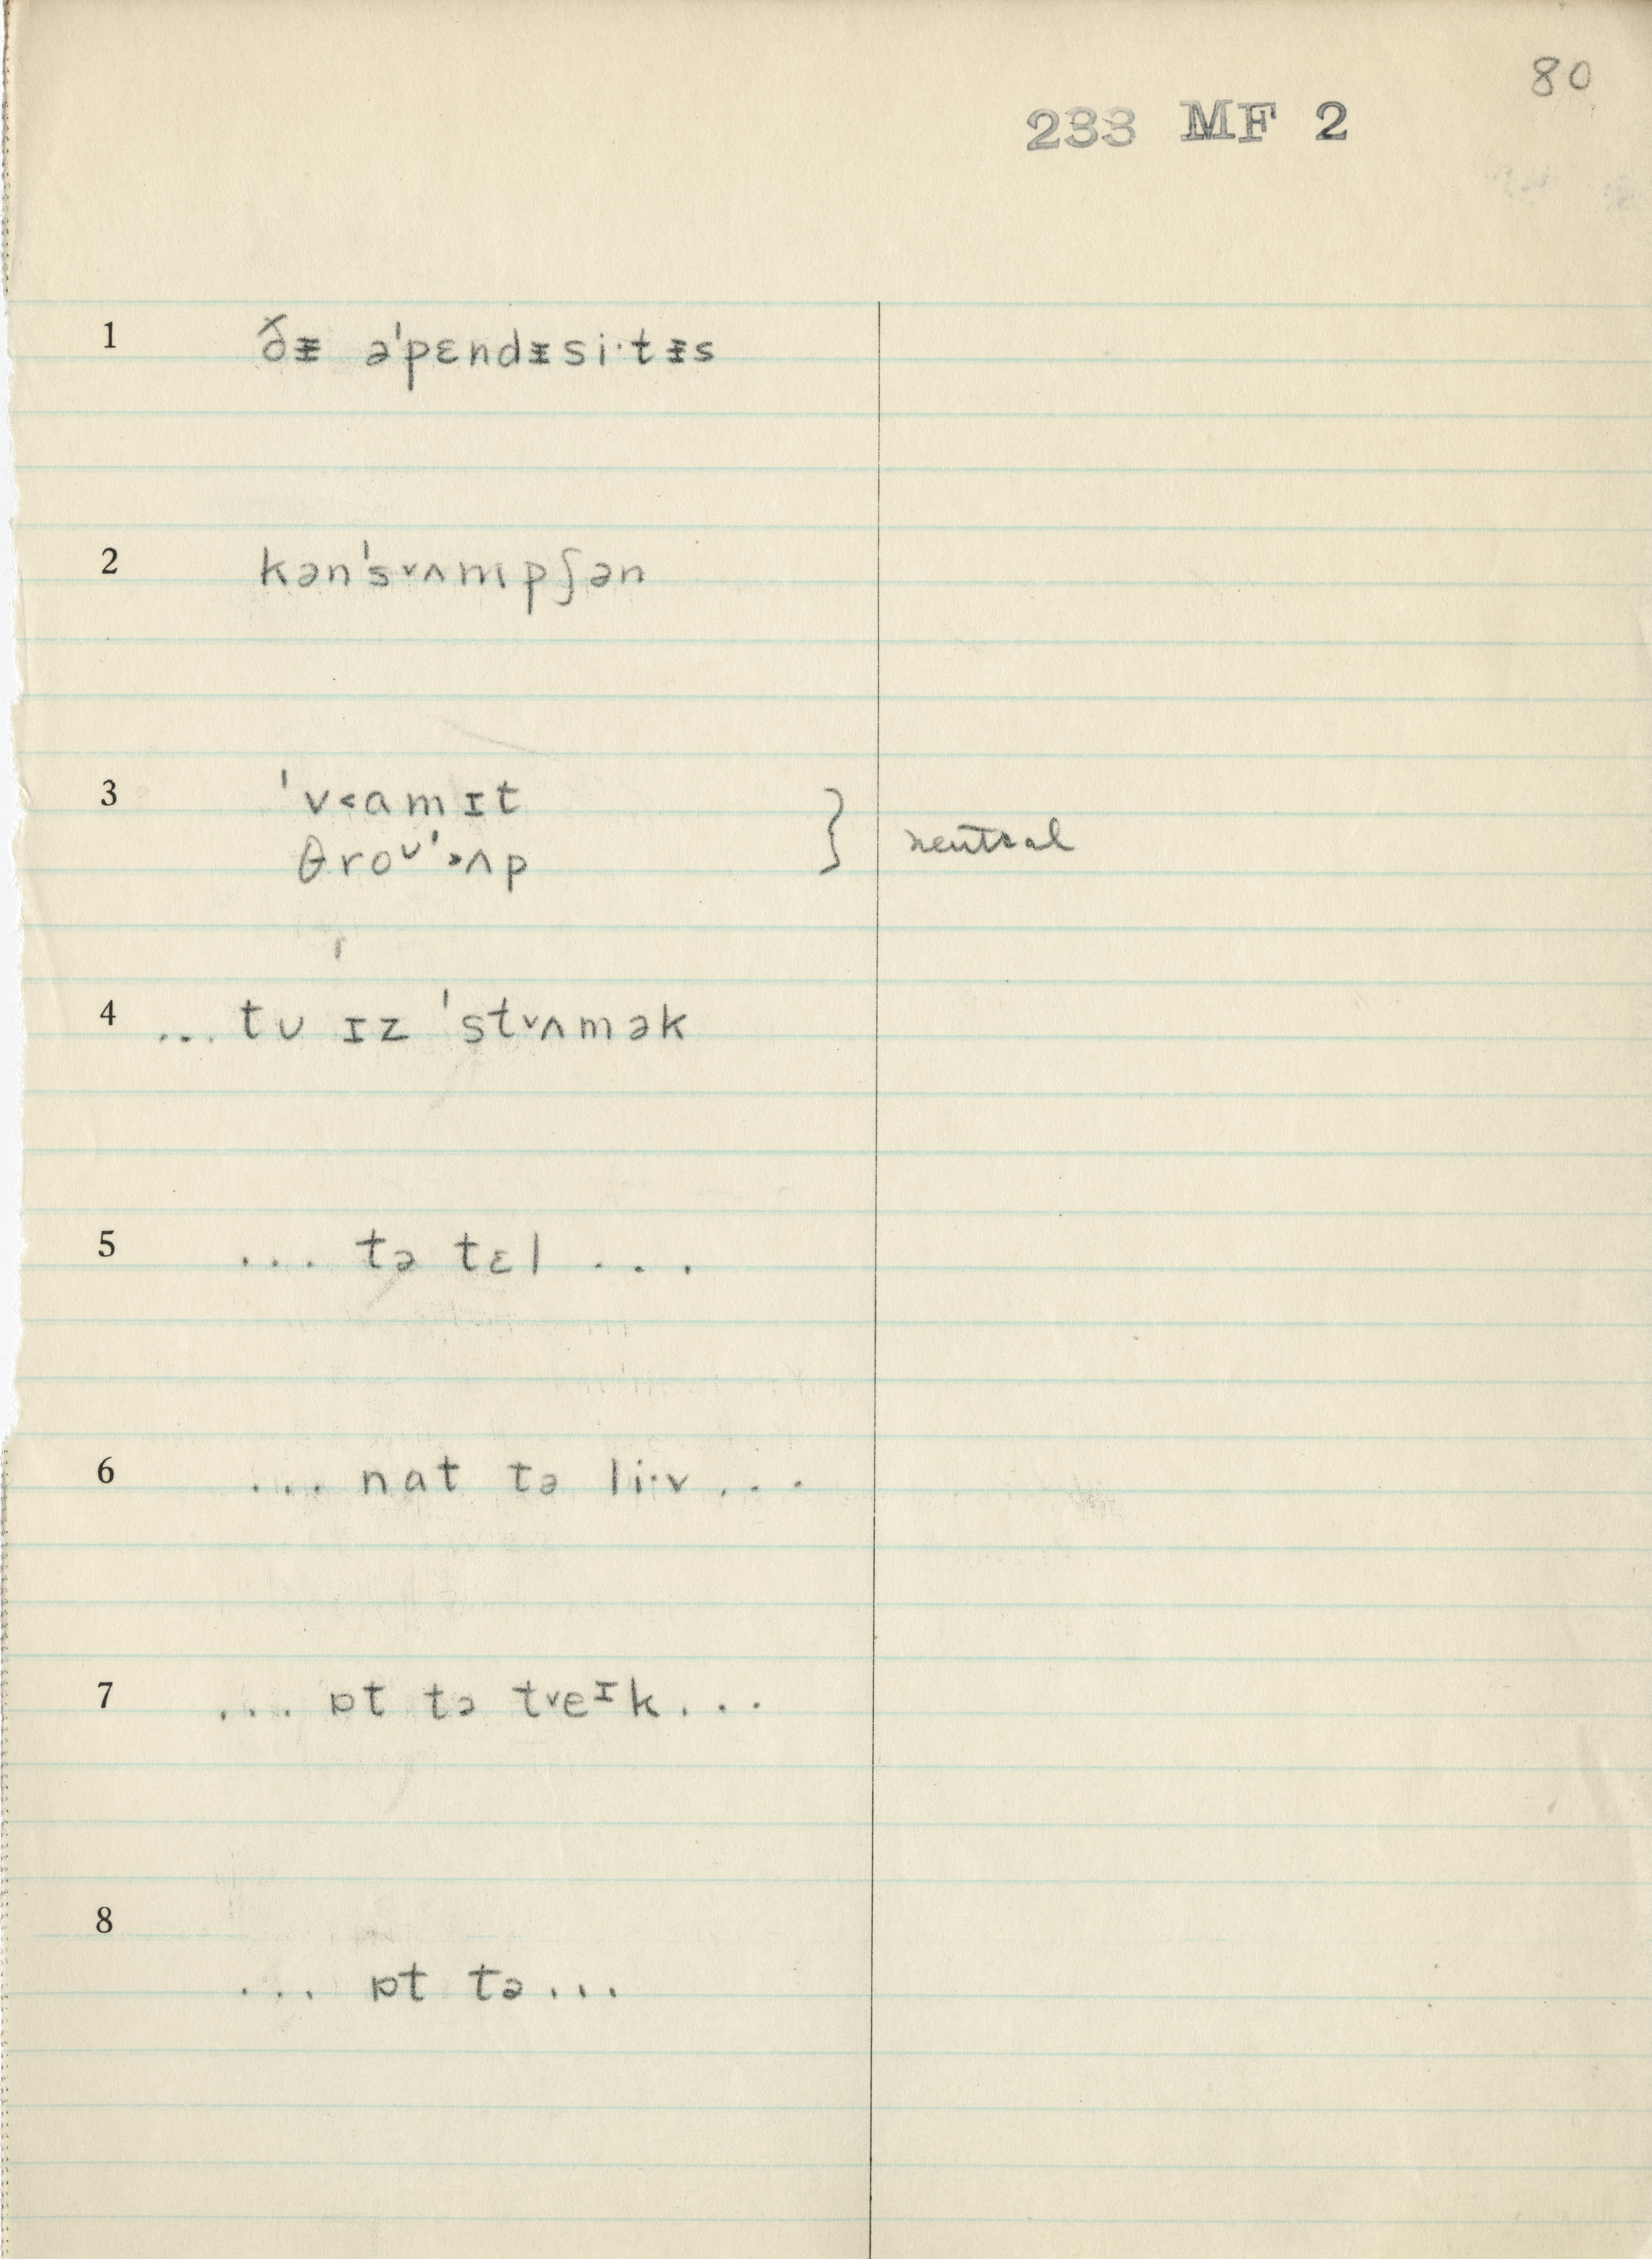 80
233 MF 2
1 ðᵻ ə'pɛndᵻsi·tᵻs
2 kən's˅ʌmpʃən
3 'v˂amɪt
θroᶷ'˃ʌp } neutral
4 ... tʊ ɪz 'st˅ʌmək
5 ... tə tɛl ...
6 ... nat tə li·v ...
7 ... ɒt tə t˅eᶦk ...
8
... ɒt tə ...